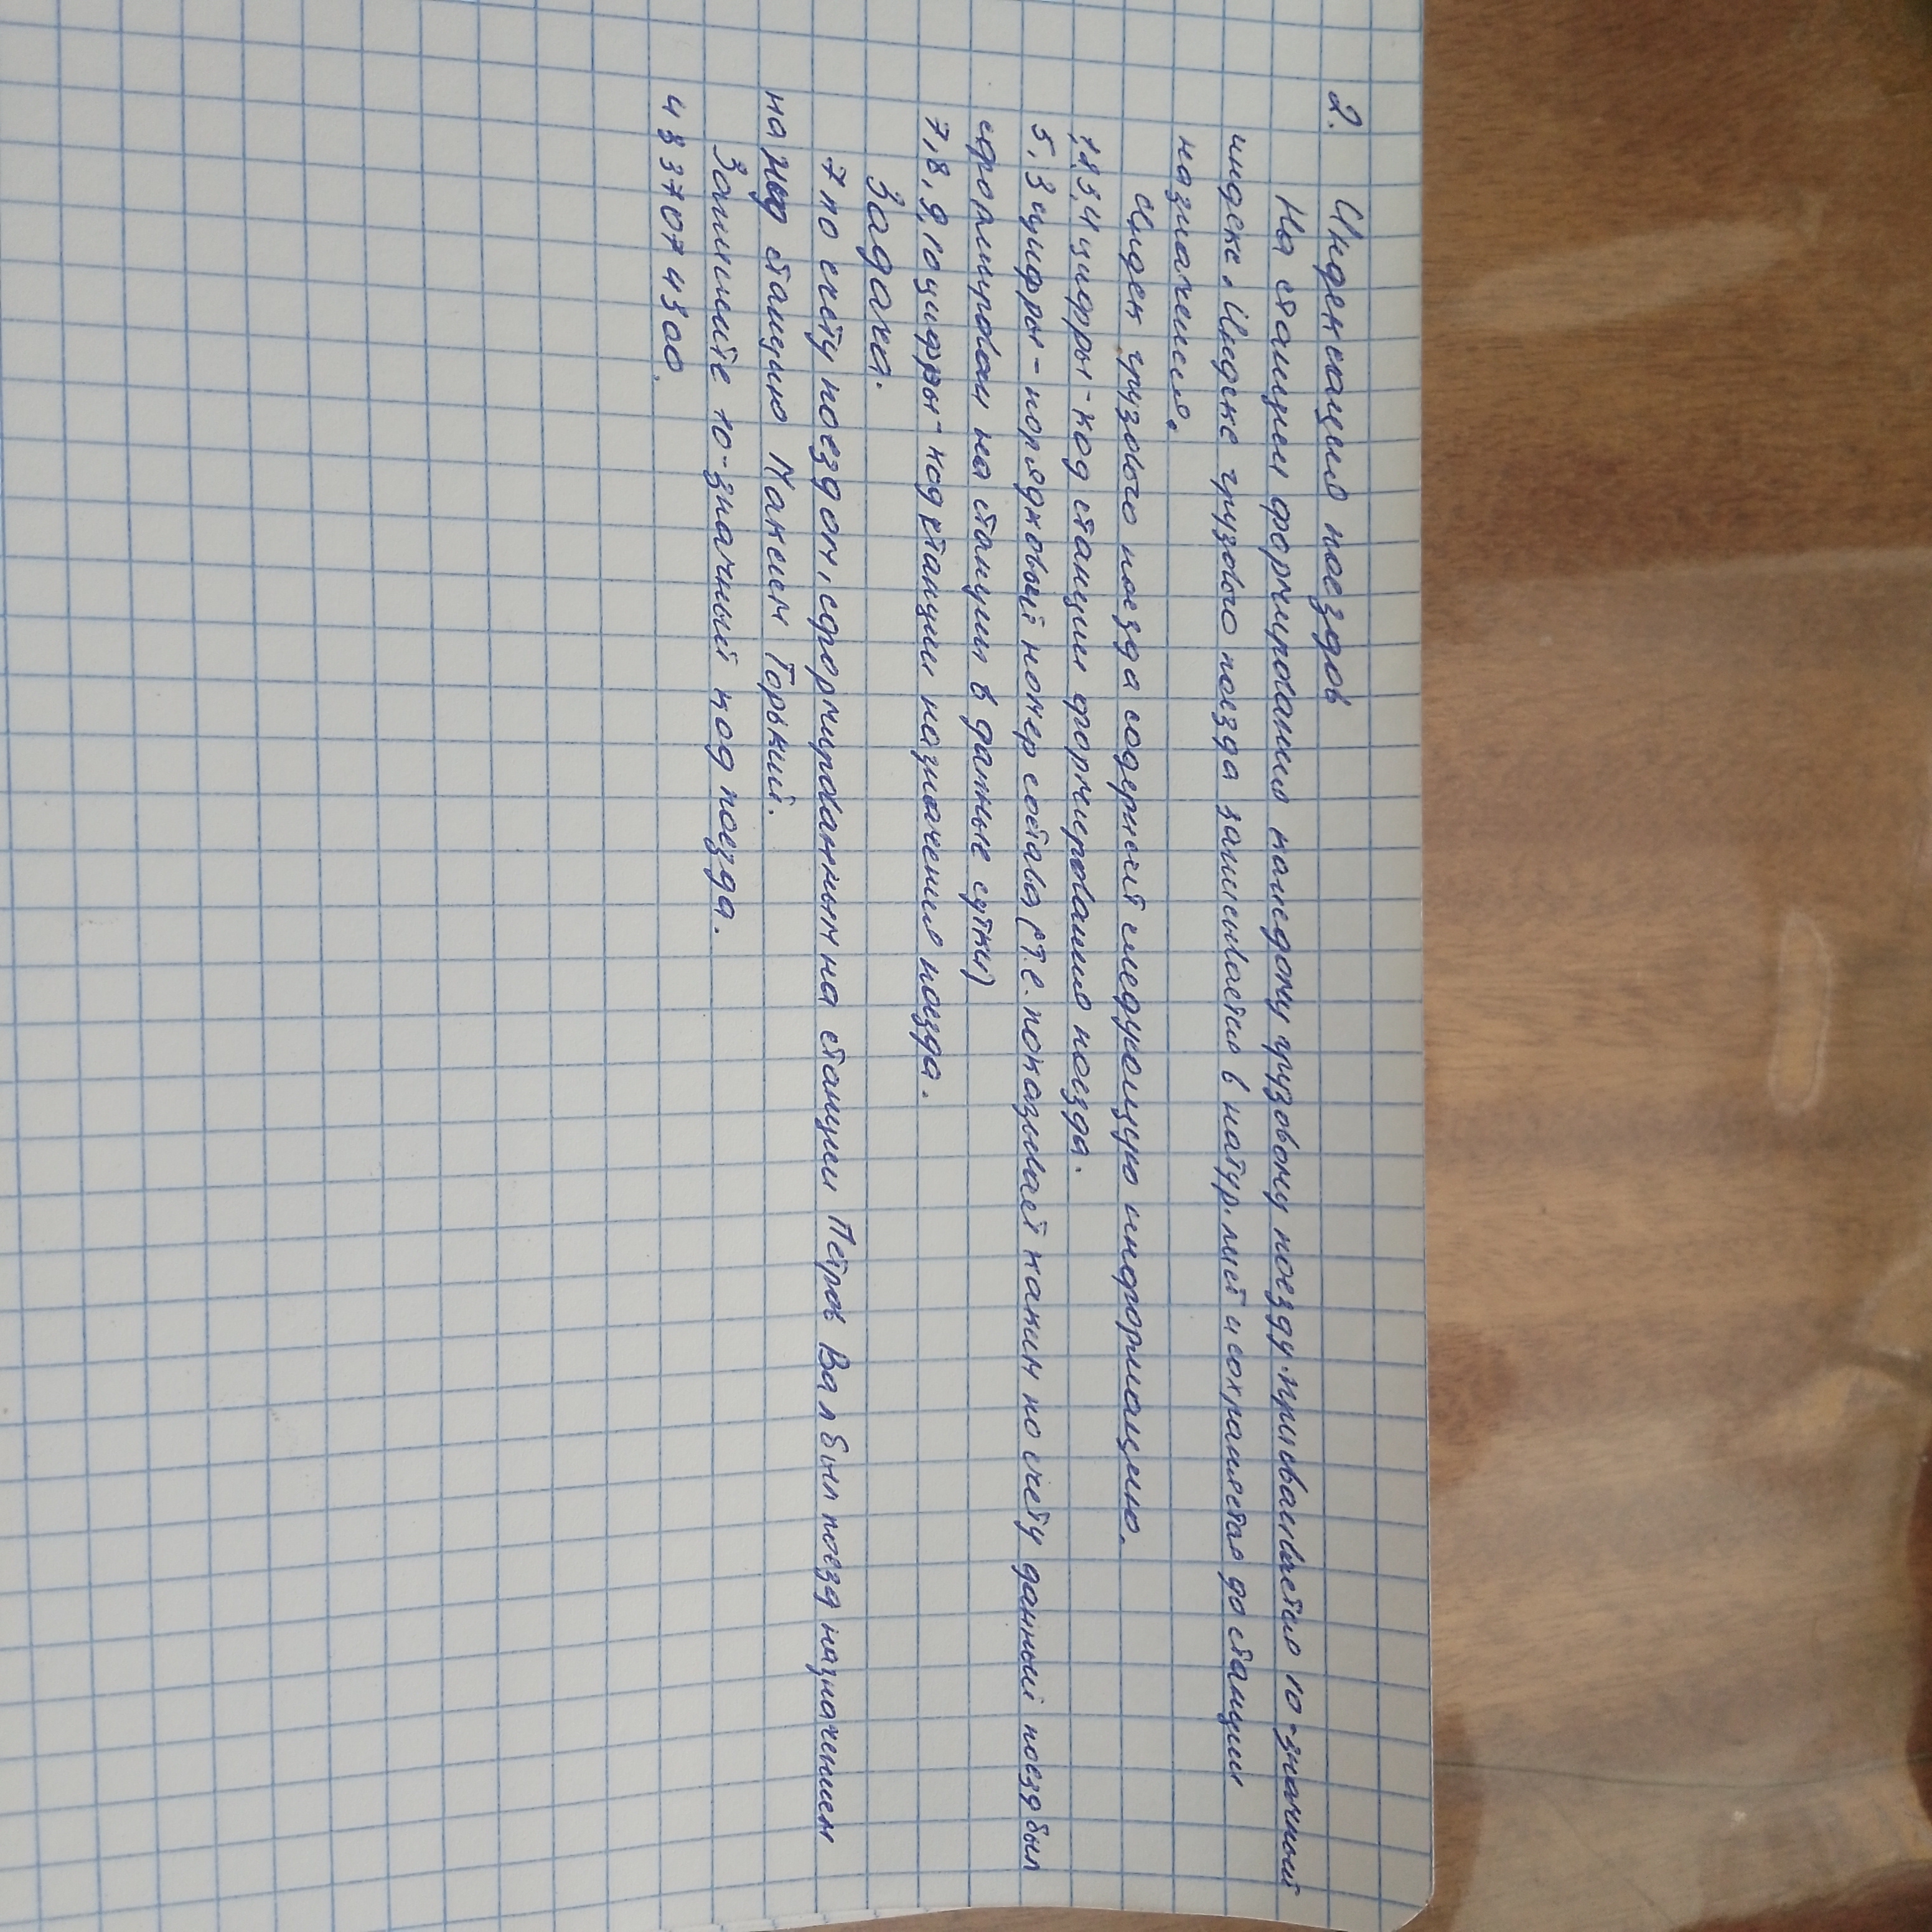 2. Индексация поездов
На станции формирования каждому грузовому поезду присваивается 10-значный
индекс. Индекс грузового поезда записывается в натур. лист и сохраняется до станции
назначения.
Индек грузового поезда содержит следующую информацию.
1,2,3,4 цифры - код станции формирования поезда.
5, 3 цифры - порядковый номер состава (т.е. показывает каким по счету данный поезд был
сформирован на станции в данные сутки)
7, 8, 9, 10 цифры - код станции назначения поезда.
Задача.
7 по счету поездом, сформированным на станции Петров Вал был поезд назначением
на станцию Максим Горький.
Запишите 10-значный код поезда.
4337074300.